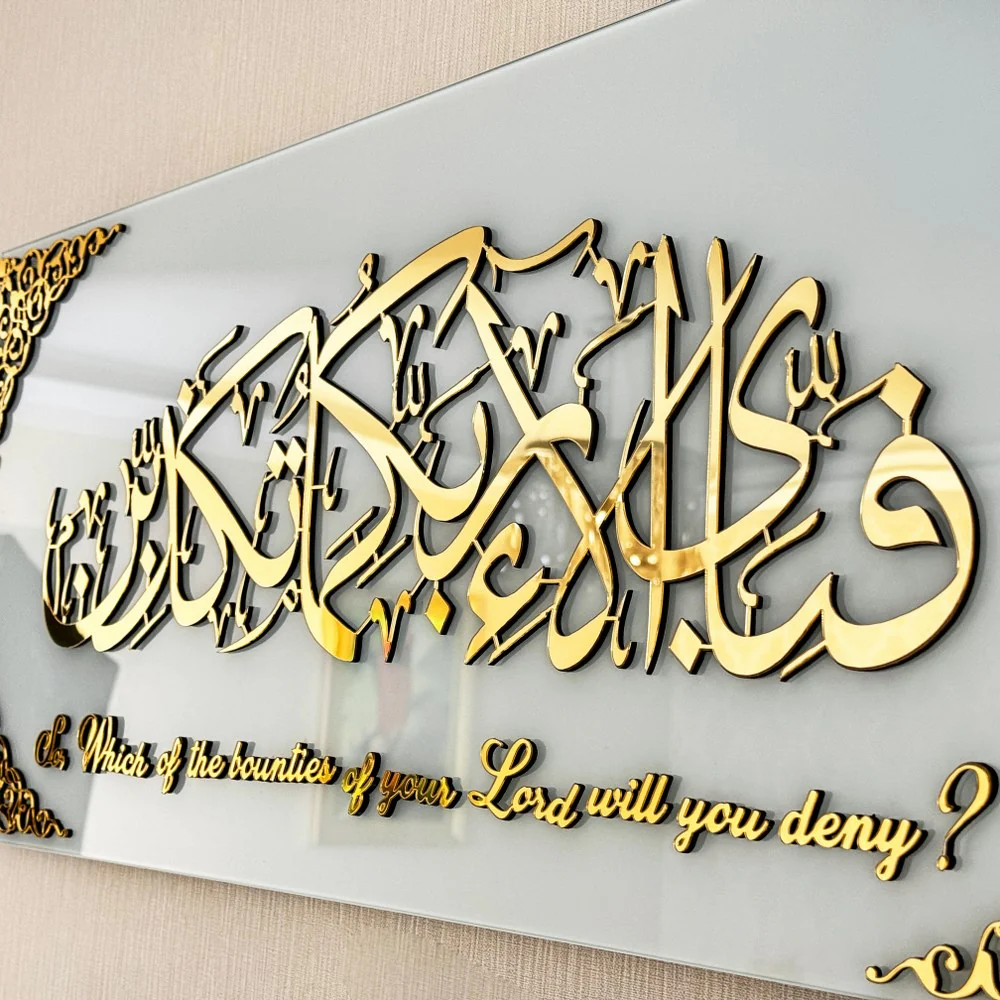 فَبِأَيِّ آلَاءِ رَبِّكُمَا تُكَذِّبَانِ
So, Which of the bounties of your Lord will you deny?